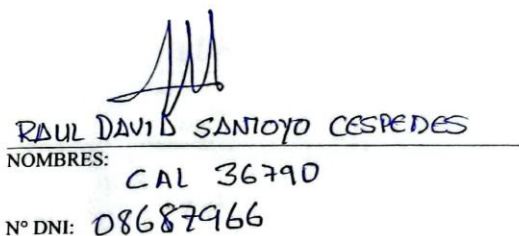 RAUL DAVID SANTOYO CESPEDES
NOMBRES:
CAL 36790
N° DNI: 08687966